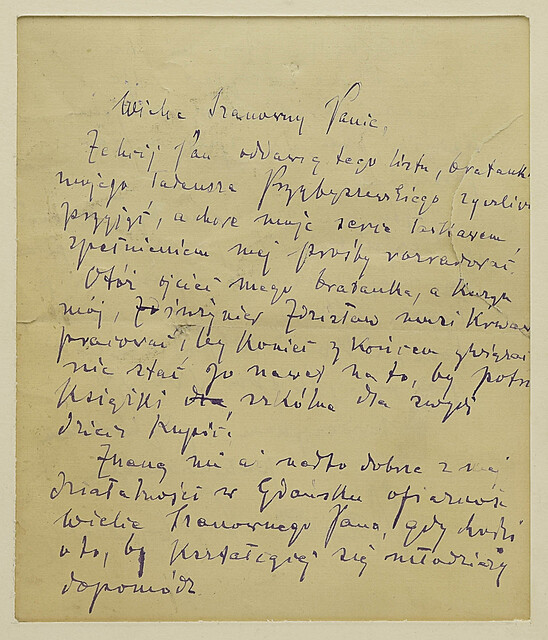 Wielce Szanowny Panie,
Zechciej Pan oddawcę tego listu, bratanka
mojego Tadeusza Przybyszewskiego życzliwie
przyjąć, a chore moje serce łaskawem
spełnieniem mej prośby rozradować.
Otóż ojciec mego bratanka, a kuzyn
mój, inżynier Zdzisław musi krwawo
pracować, by koniec z końcem związać
nie stać go nawet na to, by potrz
książki szkólne dla swych
dzieci kupić.
Znaną mi aż nadto dobrze z mej
działalności w Gdańsku ofiarność
Wielce Szanownego Pana, gdy chodzi
o to, by kształcącej się młodzieży
dopomódz